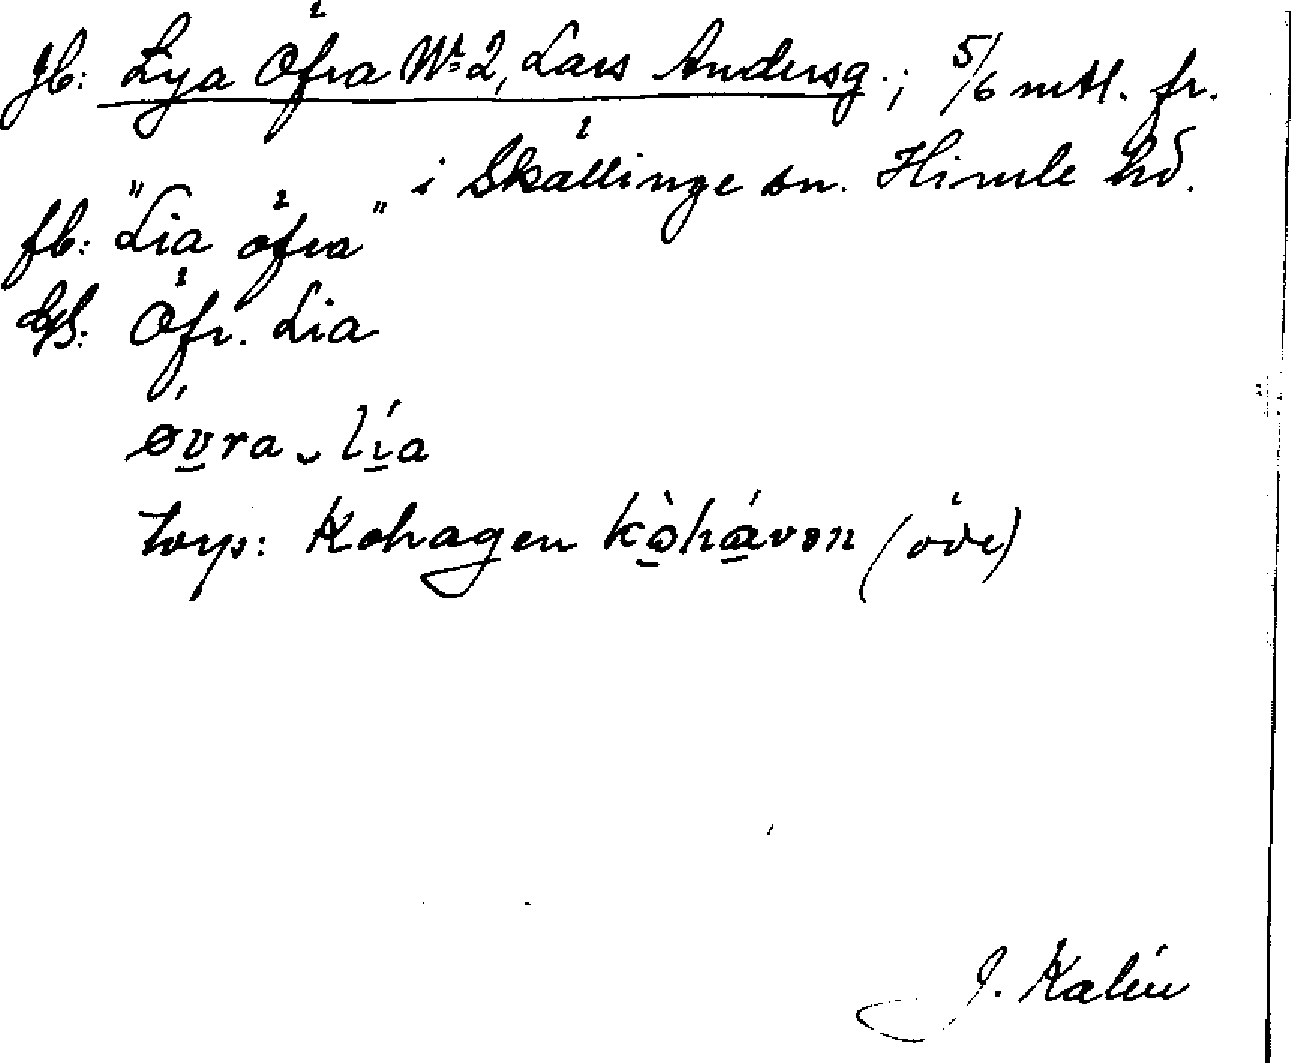 Jb: Lya Öfra № 2, Lars Andersg.; 5/6 mtl. fr.
i Skällinge sn. Himle hd.
fb: "Lia öfra"
Öfr. Lia
øvra‿lía
torp: Kohagen kòhávən (öde)
J. Kalén